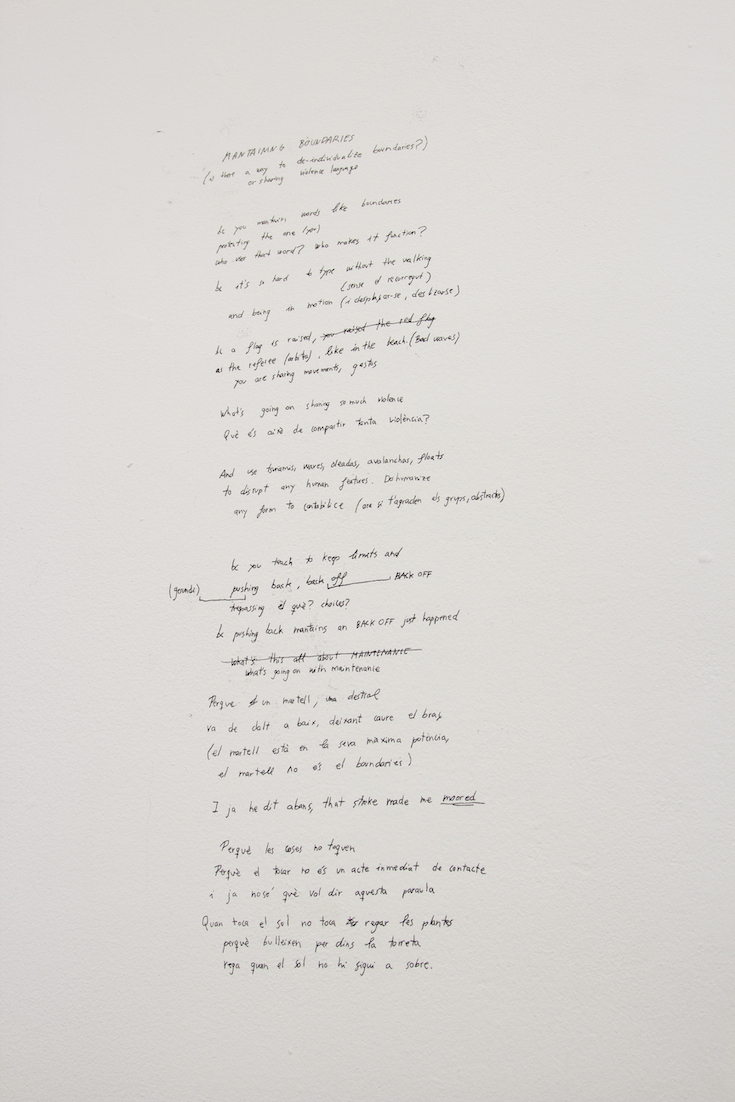 MANTAINING BOUNDARIES
(is there a way to de-individualize boundaries?)
or sharing violence language
be you mantain words like boundaries
protecting the one (you)
who use that word? Who makes it function?
be it's so hard to type without the walking
(sense el recorregut)
and being in motion (i desplaçar-se, deslizarse)
be a flag is raised, you raised the red flag
as the referee (arbitro), like in the beach. (Bad waves)
you are sharing movements, gestos
What's going on sharing so much violence
Què és això de compartir tanta violència?
And use tsunamis, waves, oleadas, avalanchas, floats
to disrupt any human features. Dehumanize
any form to contabilice (ara si t'agraden els grups, abstractes)
be you teach to keep limits and
(gerundi) pushing back, back off BACK OFF
trepassing el què? choices?
be pushing back mantains an BACK OFF just happened
What's this all about MAINTENANCE
what's going on with maintenance
Perque un martell, una destral
va de dalt a baix, deixant caure el braç
(el martell està en la seva maxima potencia,
el martell no és el boundaries)
I ja he dit abans, that stroke made me moored
Perquè les coses no toquen
Perquè el tocar no és un acte inmediat de contacte
i ja nosé què vol dir aquesta paraula
Quan toca el sol no toca regar les plantes
perquè bulleixen per dins la torreta
rega quan el sol no hi sigui a sobre.